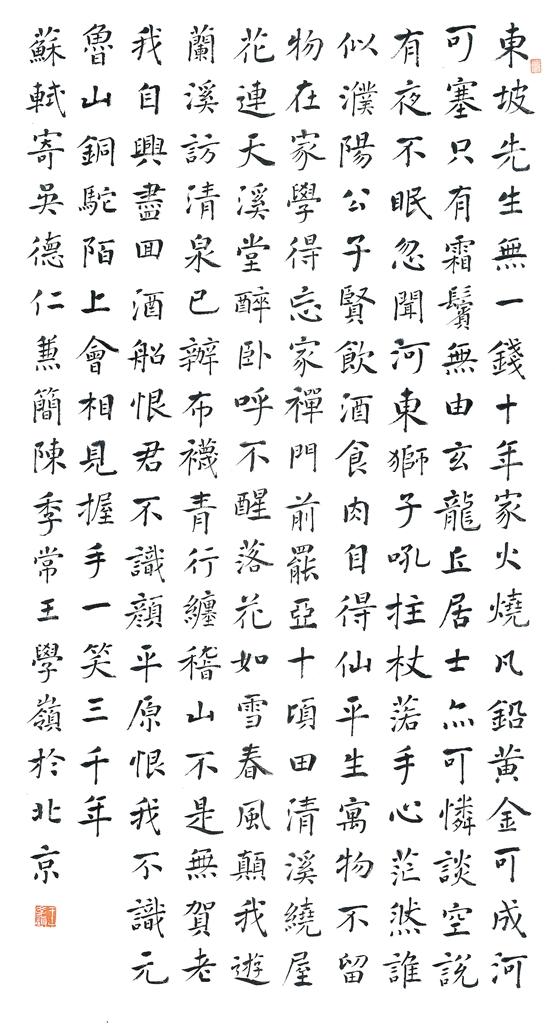 東坡先生無一錢十年家火燒凡鉛黃金可成河
可塞只有霜鬢無由玄龍丘居士亦可憐談空說
有夜不眠忽聞河東獅子吼拄杖落手心茫然誰
似濮陽公子賢飲酒食肉自得仙平生寓物不留
物在家學得忘家禪門前罷亞十頃田清溪繞屋
花連天溪堂醉臥呼不醒落花如雪春風顛我遊
蘭溪訪清泉已辦布襪青行纏稽山不是無賀老
我自興盡回酒船恨君不識顏平原恨我不識元
魯山銅駝陌上會相見握手一笑三千年
蘇軾寄吳德仁兼簡陳季常王學嶺於北京